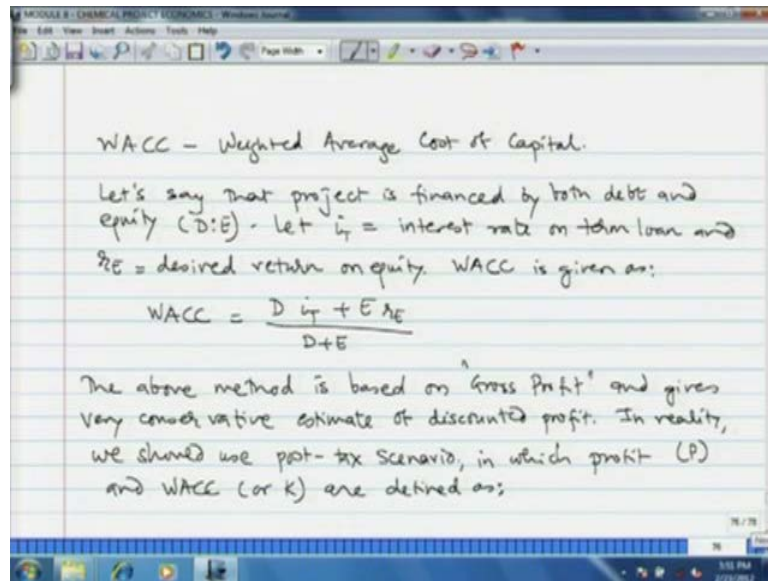 MODULE 8 - CHEMICAL PROJECT ECONOMICS - Windows Journal
File Edit View Insert Actions Tools Help
Page Width
WACC - Weighted Average Cost of Capital.
Let's say that project is financed by both debt and
equity (D:E). Let i_T = interest rate on term loan and
r_E = desired return on equity. WACC is given as:
WACC = (D i_T + E r_E) / (D+E)
The above method is based on "Gross Profit" and gives
very conservative estimate of discounted profit. In reality,
we should use post-tax scenario, in which profit (P)
and WACC (or K) are defined as:
76 / 78
76
5:51 PM